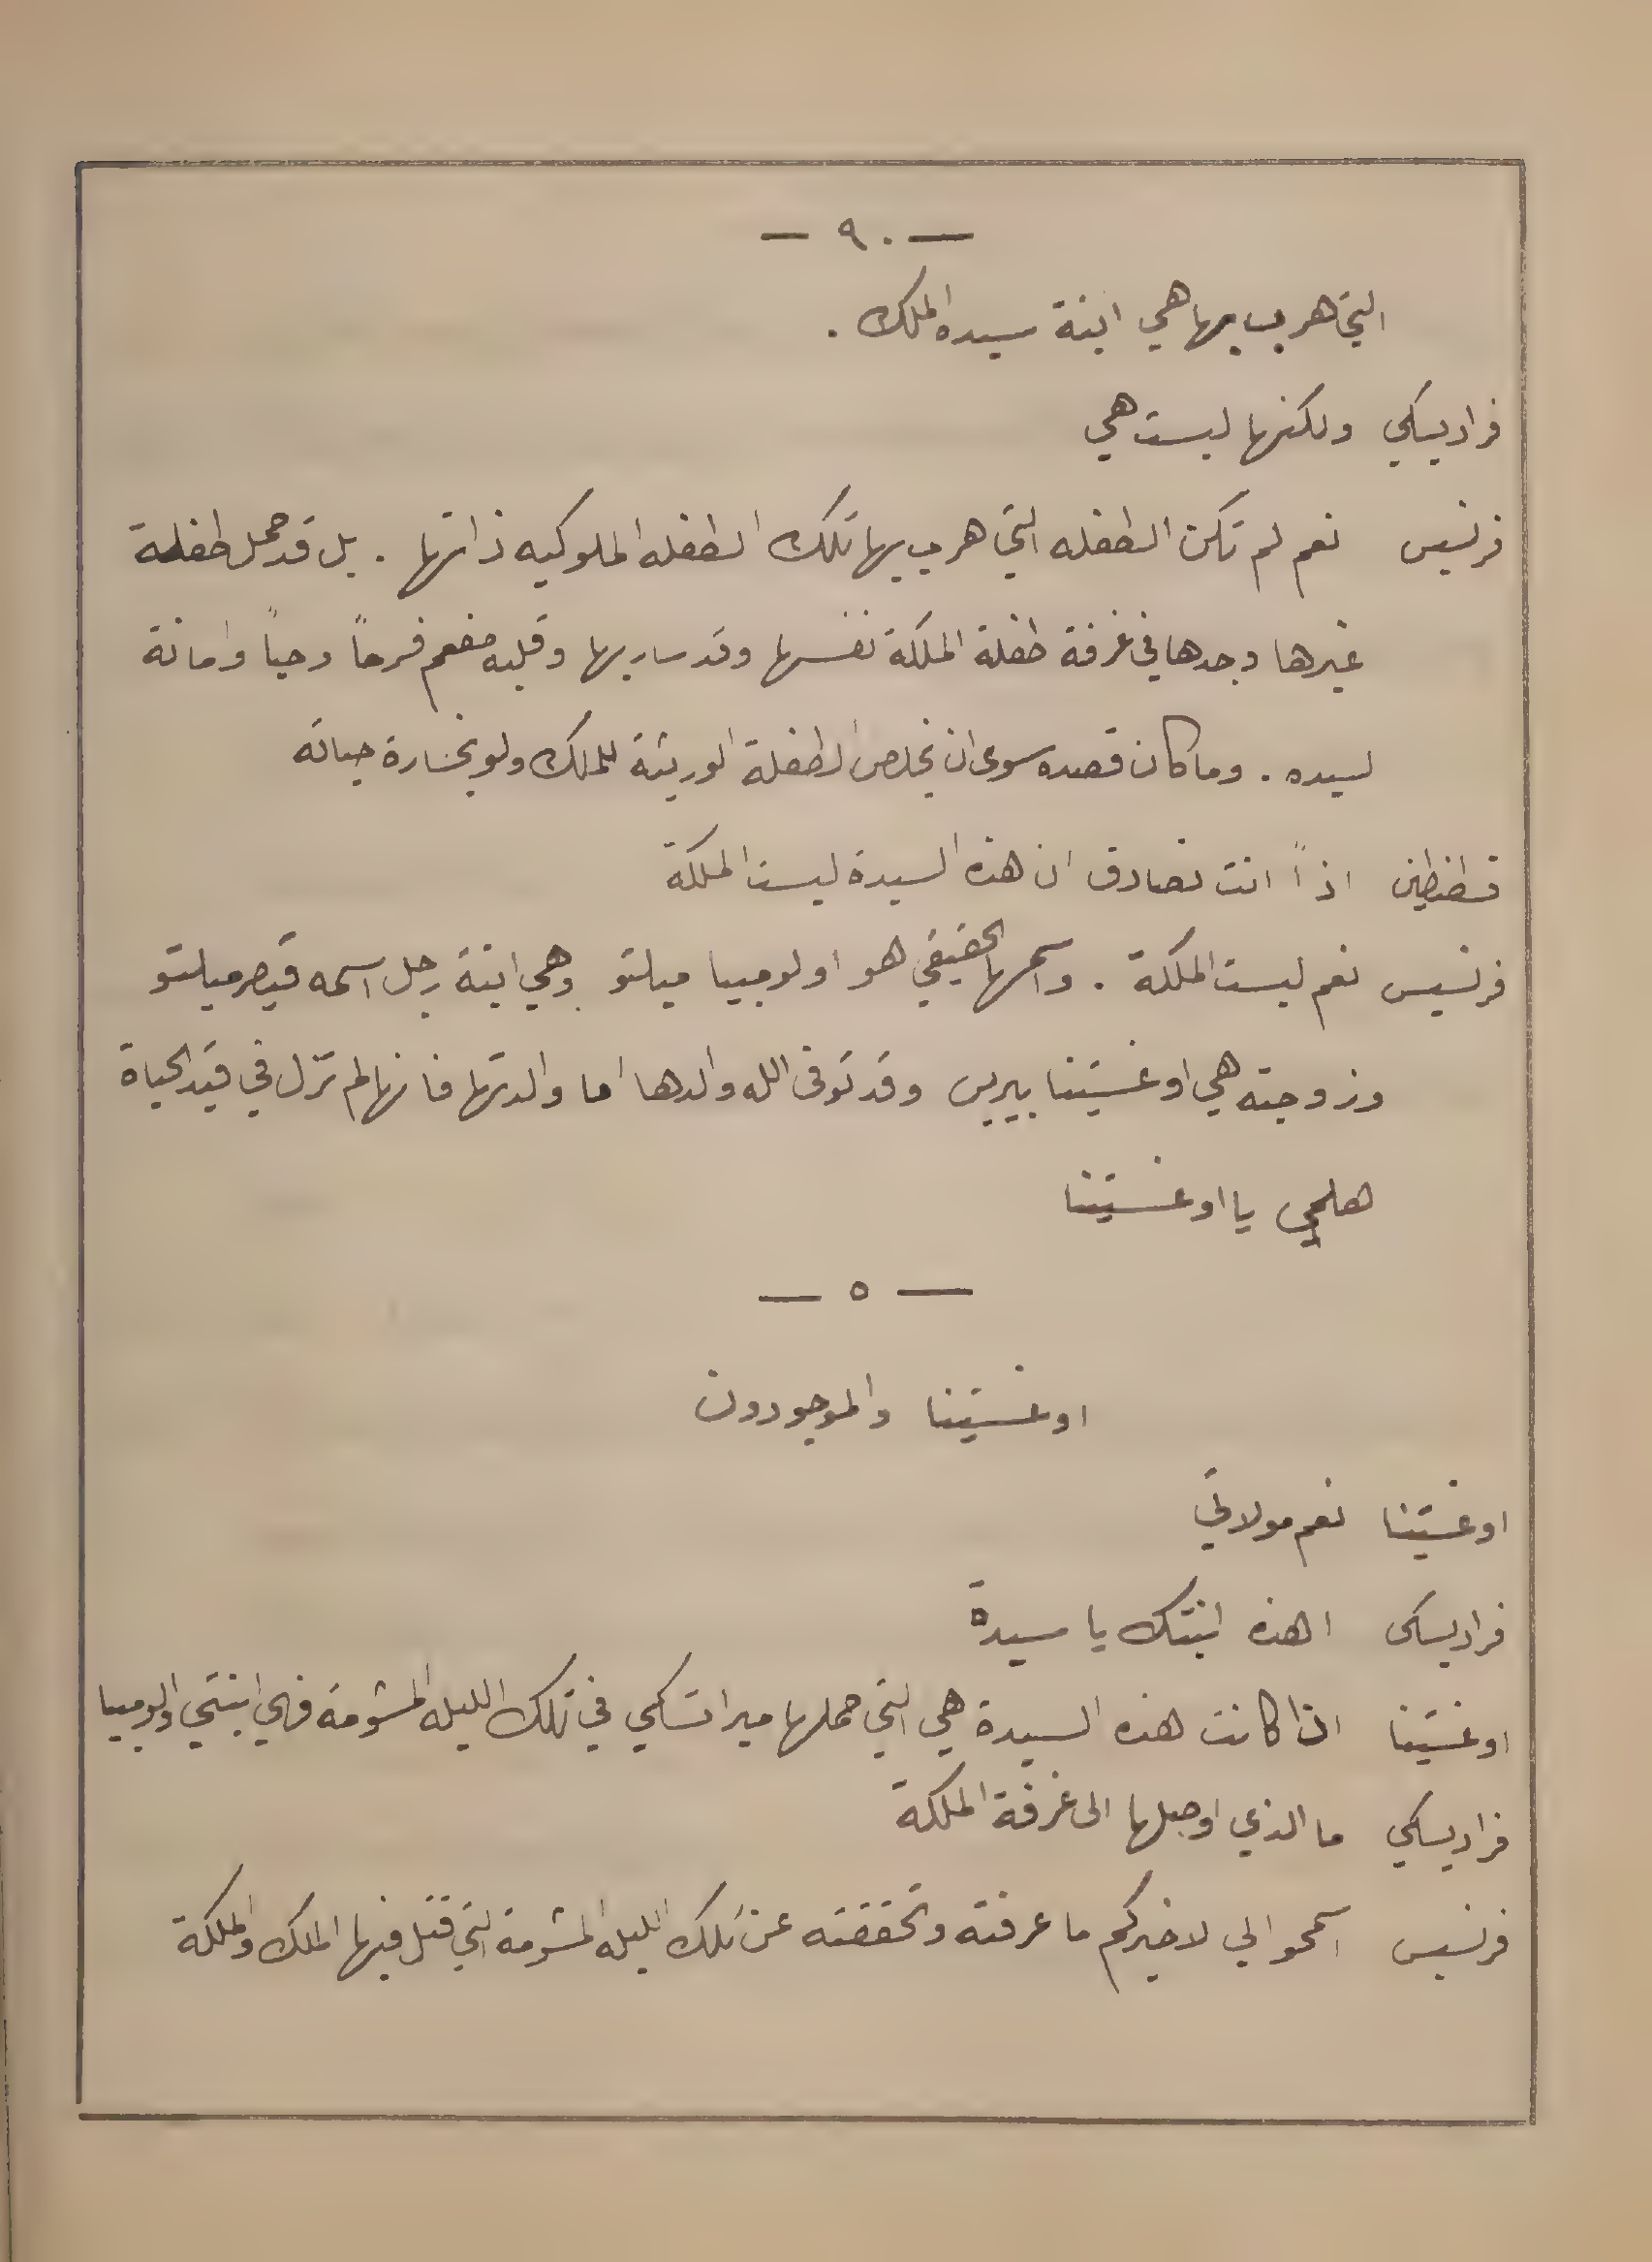 — ٩٠ —
التي هرب بها هي ابنة سيده الملك .
فراديسكي ولكنها ليست هي
فرنسيس نعم لم تكن الطفله التي هرب بها تلك الطفله الملوكيه ذاتها . بل قد حمل طفلة
غيرها وجدها في غرفة طفلة الملكة نفسها وقد سار بها وقلبه مفعم فرحاً وحباً وامانة
لسيده . وما كان قصده سوى ان يخلص الطفلة الوريثة للملك ولو بخسارة حياته
قسطنطين اذاً انت تصادق ان هذه السيدة ليست الملكة
فرنسيس نعم ليست الملكة . واسمها الحقيقي هو اولومبيا ميلتو وهي ابنة رجل اسمه قيصر ميلتو
وزوجته هي اوغستينا بيرس وقد توفى الله والدها اما والدتها فانها لم تزل في قيد الحياة
هلمي يا اوغستينا
— ٥ —
اوغستينا والموجودون
اوغستينا نعم مولاتي
فراديسكي اهذه ابنتك يا سيدة
اوغستينا اذا كانت هذه السيدة هي التي حملها ميراتسكي في تلك الليله المشومة فهي ابنتي اولومبيا
فراديسكي ما الذي اوصلها الى غرفة الملكة
فرنسيس اسمحوا لي لاخبركم ما عرفته وتحققته عن تلك الليله المشومة التي قتل فيها الملك والملكة